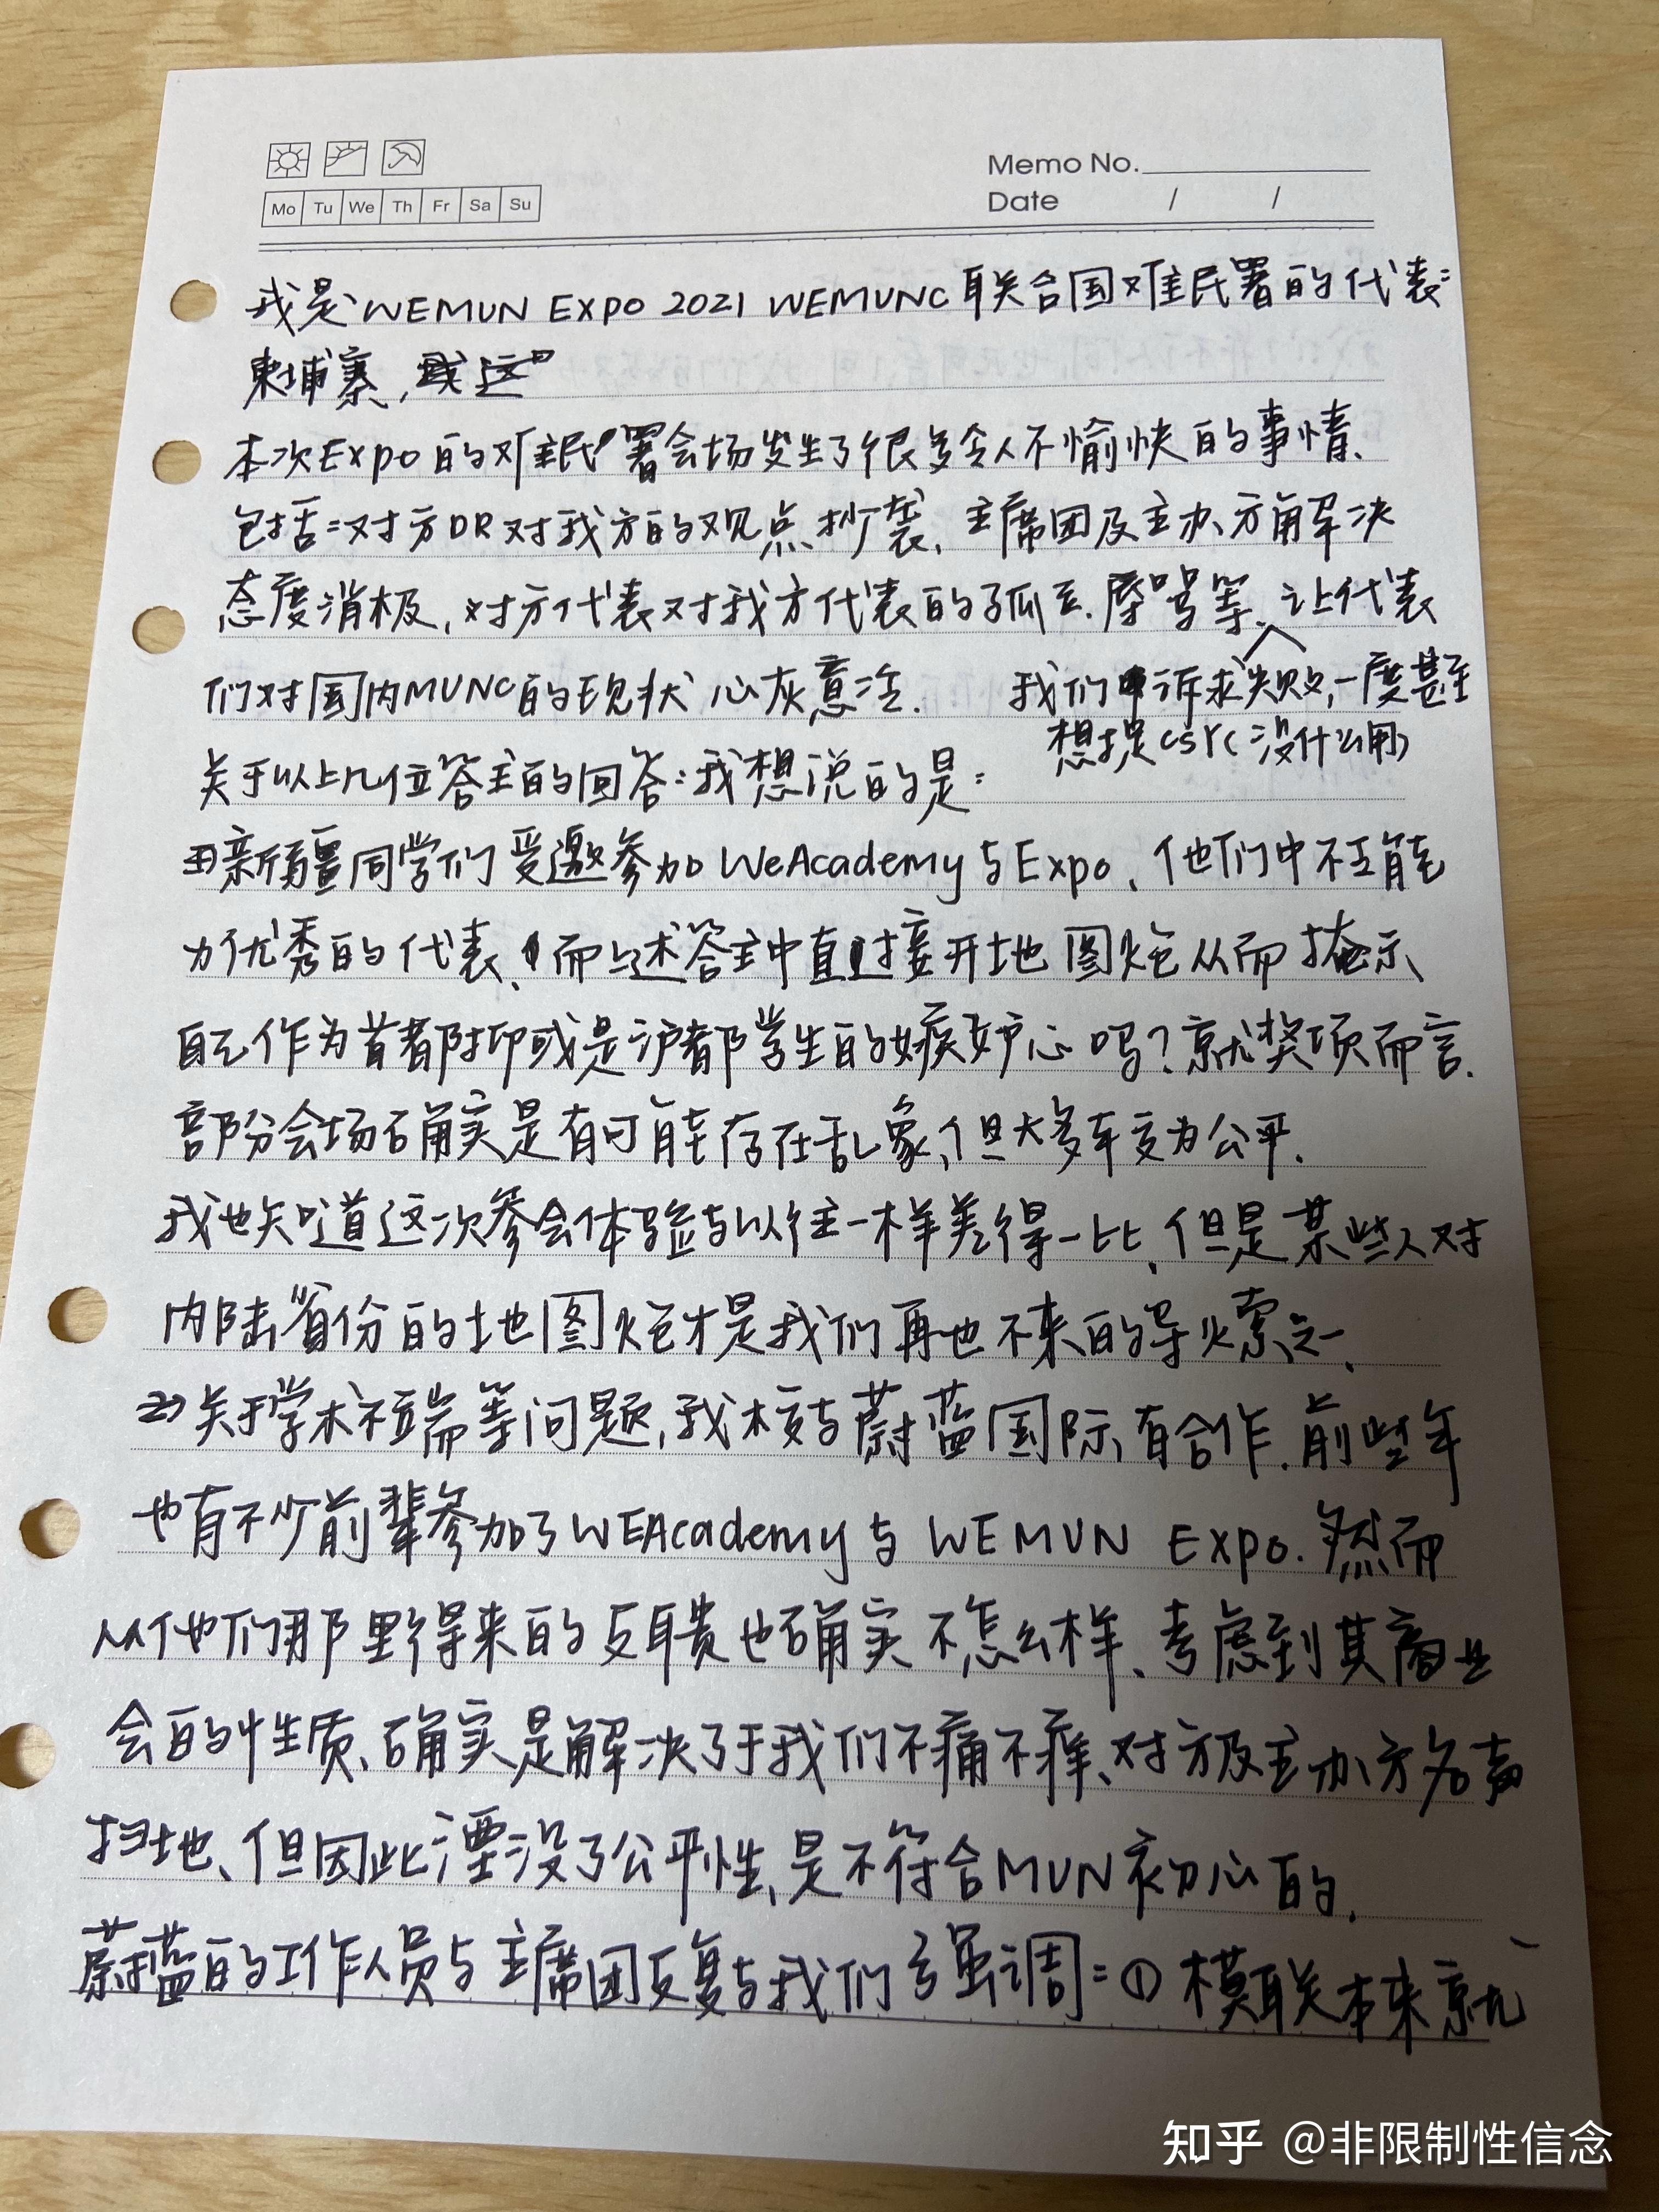 Memo No.
Mo Tu We Th Fr Sa Su
Date / /
我是WEMUN EXPO 2021 WEMUNC联合国难民署的代表:
柬埔寨,
本次Expo的难民署会场发生了很多令人不愉快的事情、
包括:对方DR对我方的观点抄袭、主席团及主办方解决
态度消极,对方代表对我方代表的孤立.辱骂等、让代表
们对国内MUNC的现状心灰意冷. 我们申诉求失败,一度甚至
想提csr(没什么用)
关于以上几位答主的回答:我想说的是:
1)新疆同学们受邀参加WeAcademy与Expo、他们中不乏能
为优秀的代表、而上述答主中直接开地图炮从而掩示
自己作为首都抑或是沪都学生的嫉妒心吗?就奖项而言.
部分会场确实是有可能存在乱象,但大多较为公平.
我也知道这次参会体验与以往一样差得一比、但是某些人对
内陆省份的地图炮才是我们再也不来的导火索之一.
2)关于学术社端等问题,我校与蔚蓝国际有合作.前些年
也有不少前辈参加了WEAcademy与WEMUN Expo.然而
从他们那里得来的反馈也确实不怎么样、考虑到其商业
会的性质、确实是解决了于我们不痛不痒、对方及主办方名声
扫地、但因此湮没了公平性,是不符合MUN初心的.
蔚蓝的工作人员与主席团反复与我们强调:①模联本来就
知乎 @非限制性信念